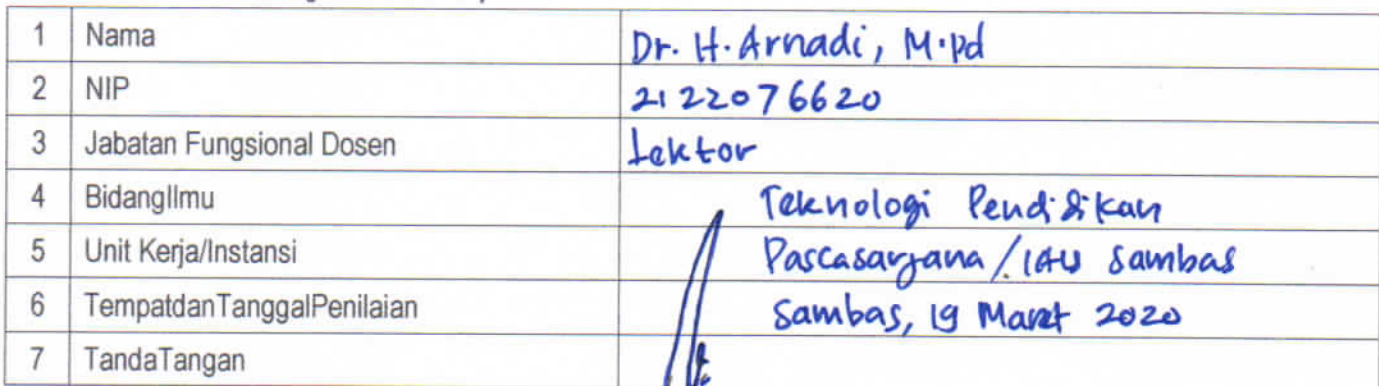 1 Nama Dr. H. Arnadi, M.Pd
2 NIP 2122076620
3 Jabatan Fungsional Dosen Lektor
4 BidangIlmu Teknologi Pendidikan
5 Unit Kerja/Instansi Pascasarjana/IAIS Sambas
6 TempatdanTanggalPenilaian Sambas, 19 Maret 2020
7 TandaTangan